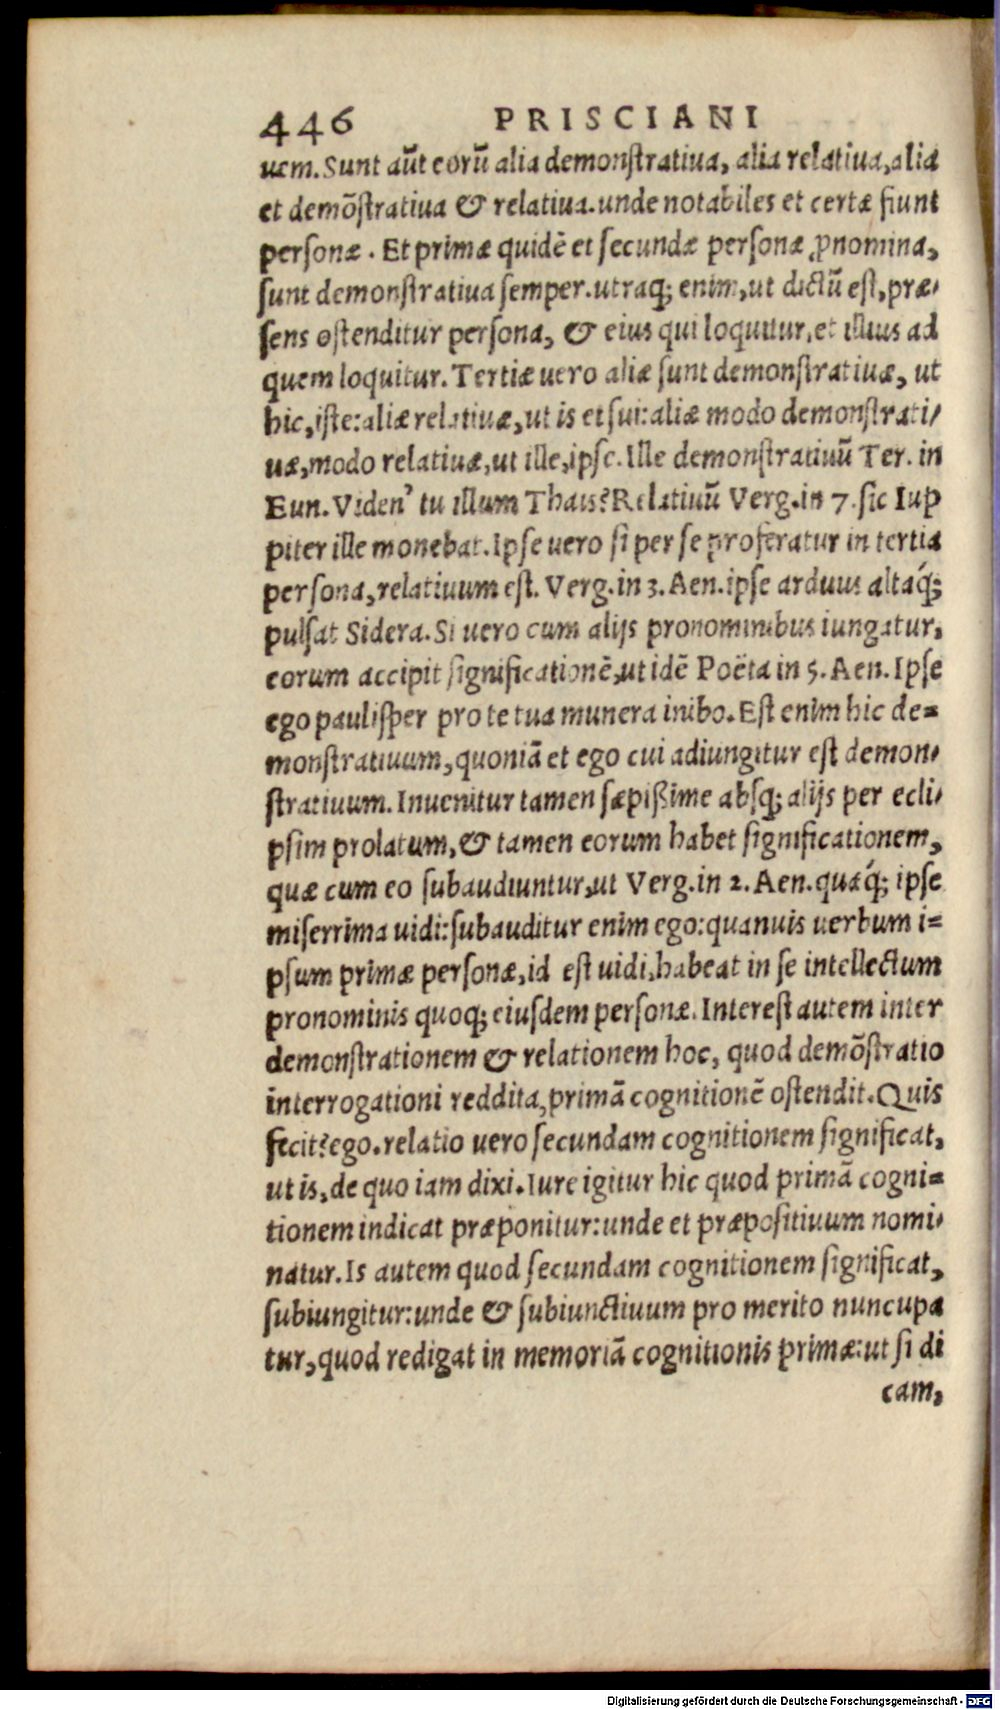 446 PRISCIANI
uem. Sunt aūt eorū alia demonſtratiua, alia relatiua, alia
et demōſtratiua & relatiua. unde notabiles et certæ fiunt
perſonæ. Et primæ quidē et ſecundæ perſonæ ꝓnomina,
ſunt demonſtratiua ſemper. utraq; enim, ut dictū eſt, præ-
ſens oſtenditur perſona, & eius qui loquitur, et illius ad
quem loquitur. Tertiæ uero aliæ ſunt demonſtratiuæ, ut
hic, iſte: aliæ relatiuæ, ut is et ſui: aliæ modo demonſtrati-
uæ, modo relatiuæ, ut ille, ipſe. Ille demonſtratiuū Ter. in
Eun. Viden' tu illum Thais? Relatiuū Verg. in 7. ſic Iup
piter ille monebat. Ipſe uero ſi per ſe proferatur in tertia
perſona, relatiuum eſt. Verg. in 3. Aen. ipſe arduus altaq́;
pulſat Sidera. Si uero cum alijs pronominibus iungatur,
eorum accipit ſignificationē, ut idē Poëta in 5. Aen. Ipſe
ego pauliſper pro te tua munera inibo. Eſt enim hic de=
monſtratiuum, quoniā et ego cui adiungitur eſt demon-
ſtratiuum. Inuenitur tamen ſæpißime abſq; alijs per ecli-
pſim prolatum, & tamen eorum habet ſignificationem,
quæ cum eo ſubaudiuntur, ut Verg. in 2. Aen. quæq́; ipſe
miſerrima uidi: ſubauditur enim ego: quanuis uerbum i=
pſum primæ perſonæ, id eſt uidi, habeat in ſe intellectum
pronominis quoq; eiuſdem perſonæ. Intereſt autem inter
demonſtrationem & relationem hoc, quod demōſtratio
interrogationi reddita, primā cognitionē oſtendit. Quis
fecit? ego. relatio uero ſecundam cognitionem ſignificat,
ut is, de quo iam dixi. Iure igitur hic quod primā cogni=
tionem indicat præponitur: unde et præpoſitiuum nomi-
natur. Is autem quod ſecundam cognitionem ſignificat,
ſubiungitur: unde & ſubiunctiuum pro merito nuncupa
tur, quod redigat in memoriā cognitionis primæ: ut ſi di
cam,
Digitalisierung gefördert durch die Deutsche Forschungsgemeinschaft - DFG